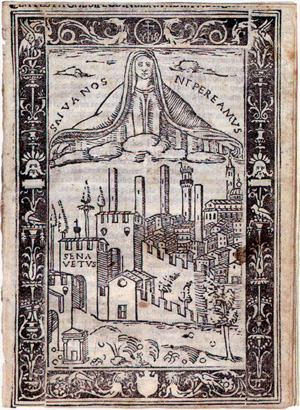 SALVANOS
NEPEREAMVS
SENA
VETVS